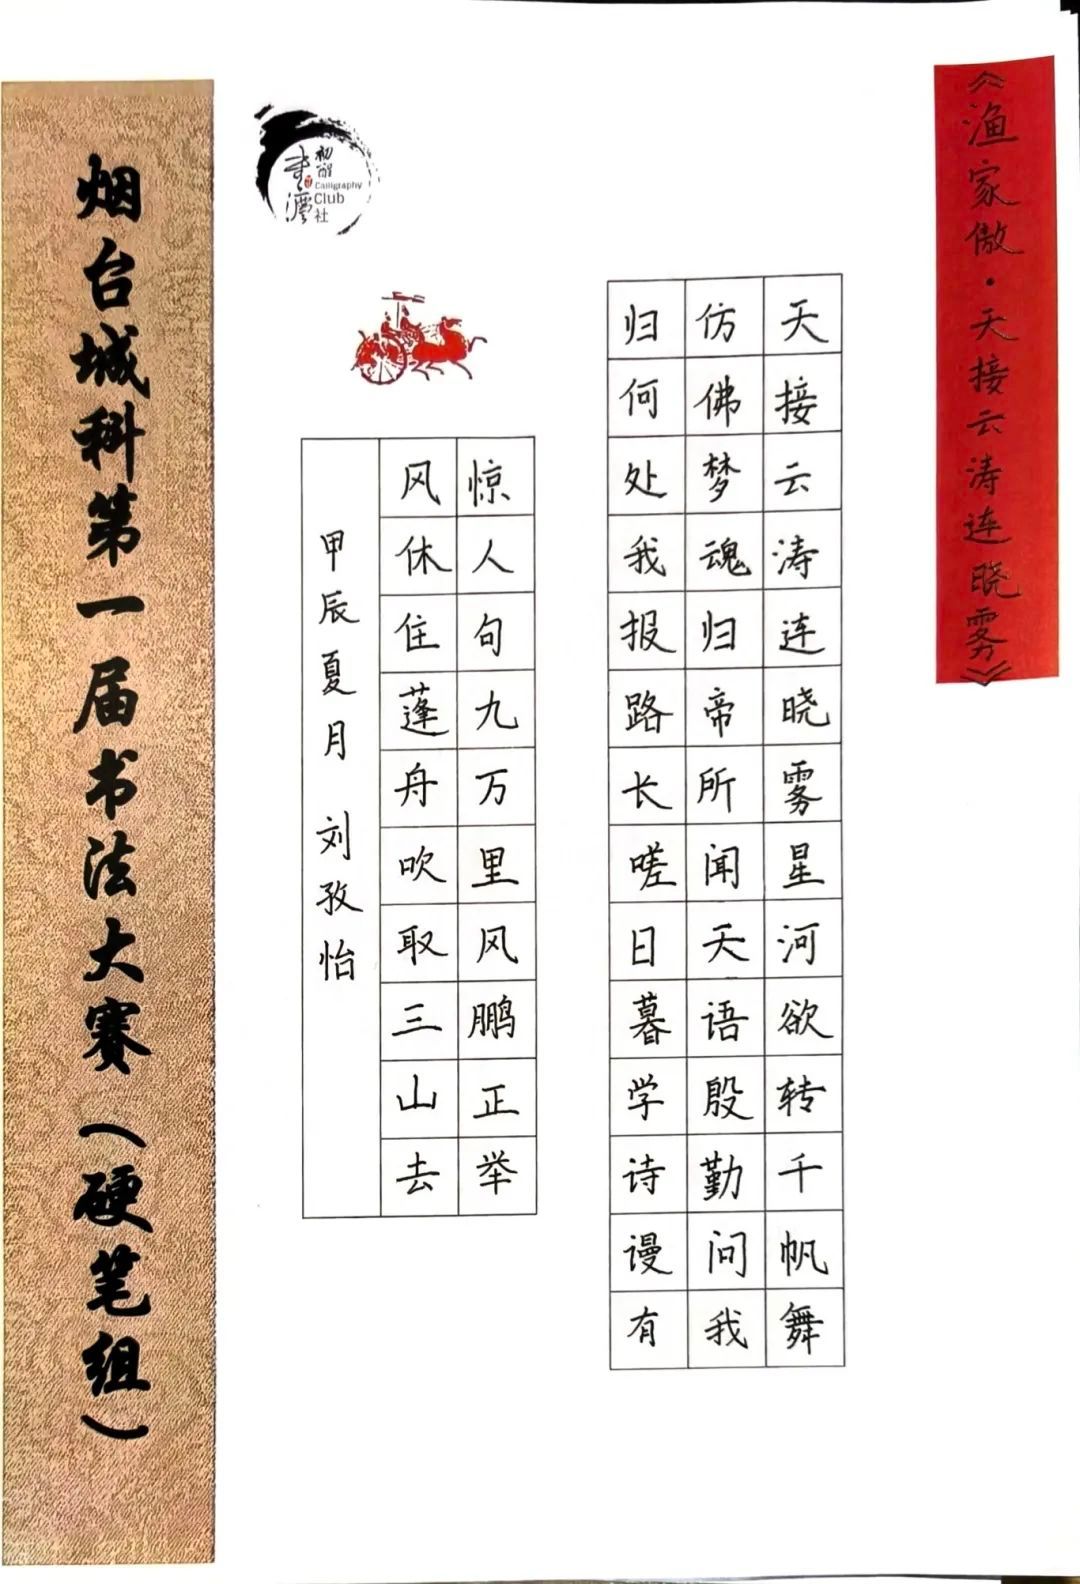 《渔家傲·天接云涛连晓雾》
天接云涛连晓雾星河欲转千帆舞
仿佛梦魂归帝所闻天语殷勤问我
归何处我报路长嗟日暮学诗谩有
惊人句九万里风鹏正举
风休住蓬舟吹取三山去
甲辰夏月 刘孜怡
初醒
Calligraphy
Club
社
烟台城科第一届书法大赛（硬笔组）